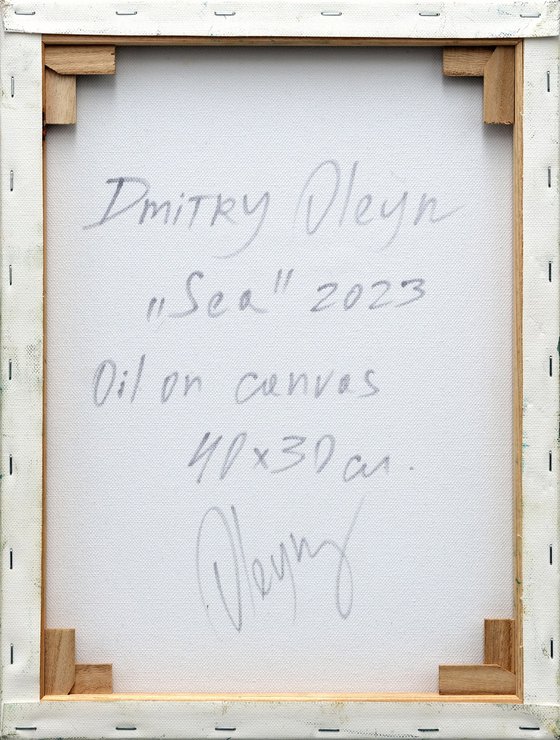 Dmitry Oleyn
„Sea" 2023
Oil on canvas
40x30 cm.
Oleyn